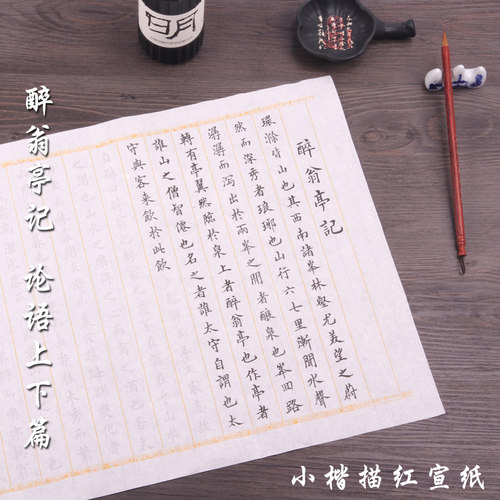 日月
醉翁亭记 论语上下篇
醉翁亭記
環滁皆山也其西南諸峯林壑尤美望之蔚
然而深秀者琅琊也山行六七里漸聞水聲
潺潺而泻出於兩峯之間者釀泉也峯回路
轉有亭翼然臨於泉上者醉翁亭也作亭者
誰山之僧智僊也名之者誰太守自謂也太
守與客來飲於此飲
小楷描红宣纸